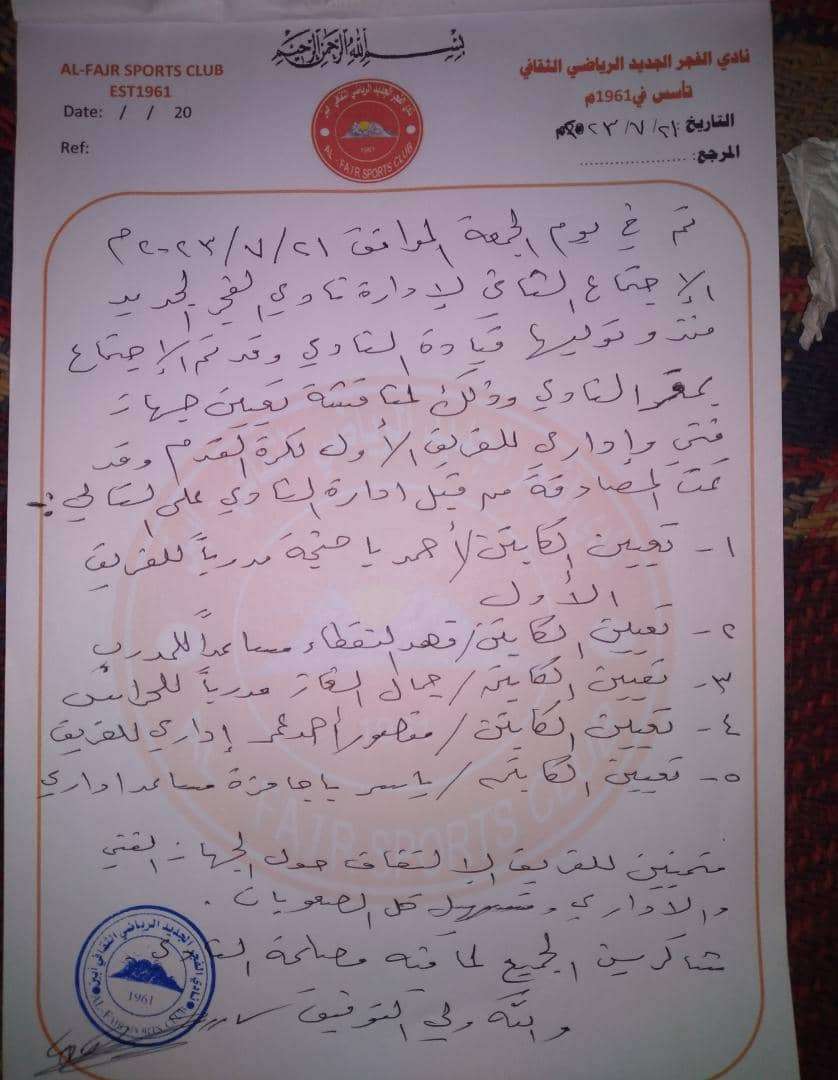 بسم الله الرحمن الرحيم
نادي الفجر الجديد الرياضي الثقافي
تأسس في 1961م
التاريخ: ٢١/ ٧/ ٢٠٢٣م
المرجع: ....................
AL-FAJR SPORTS CLUB
EST1961
Date: / / 20
Ref:
نادي الفجر الجديد الرياضي الثقافي
1961
AL-FAJR SPORTS CLUB
تم في يوم الجمعة الموافق ٢١/ ٧/ ٢٠٢٣م
الإجتماع الثاني لإدارة نادي الفجر الجديد
منذ توليها قيادة النادي وقد تم الإجتماع
بمقر النادي وذلك لمناقشة تعيين جهاز
فني وإداري للفريق الأول لكرة القدم وقد
تمت المصادقة من قبل ادارة النادي على التالي :-
١- تعيين الكابتن/ أحمد باضيحة مدرباً للفريق
الأول
٢- تعيين الكابتن/ فهد مساعداً للمدرب
٣- تعيين الكابتن/ جمال مدرباً للحراس
٤- تعيين الكابتن/ منصور أحمد عمر إداري للفريق
٥- تعيين الكابتن/ ياسر مساعد اداري
متمنين للفريق الإلتفاف حول الجهاز الفني
والاداري وتسهيل كل الصعوبات .
شاكرين الجميع لما فيه مصلحة النادي
والله ولي التوفيق
نادي الفجر الجديد الرياضي الثقافي
1961
AL-FAJR SPORTS CLUB